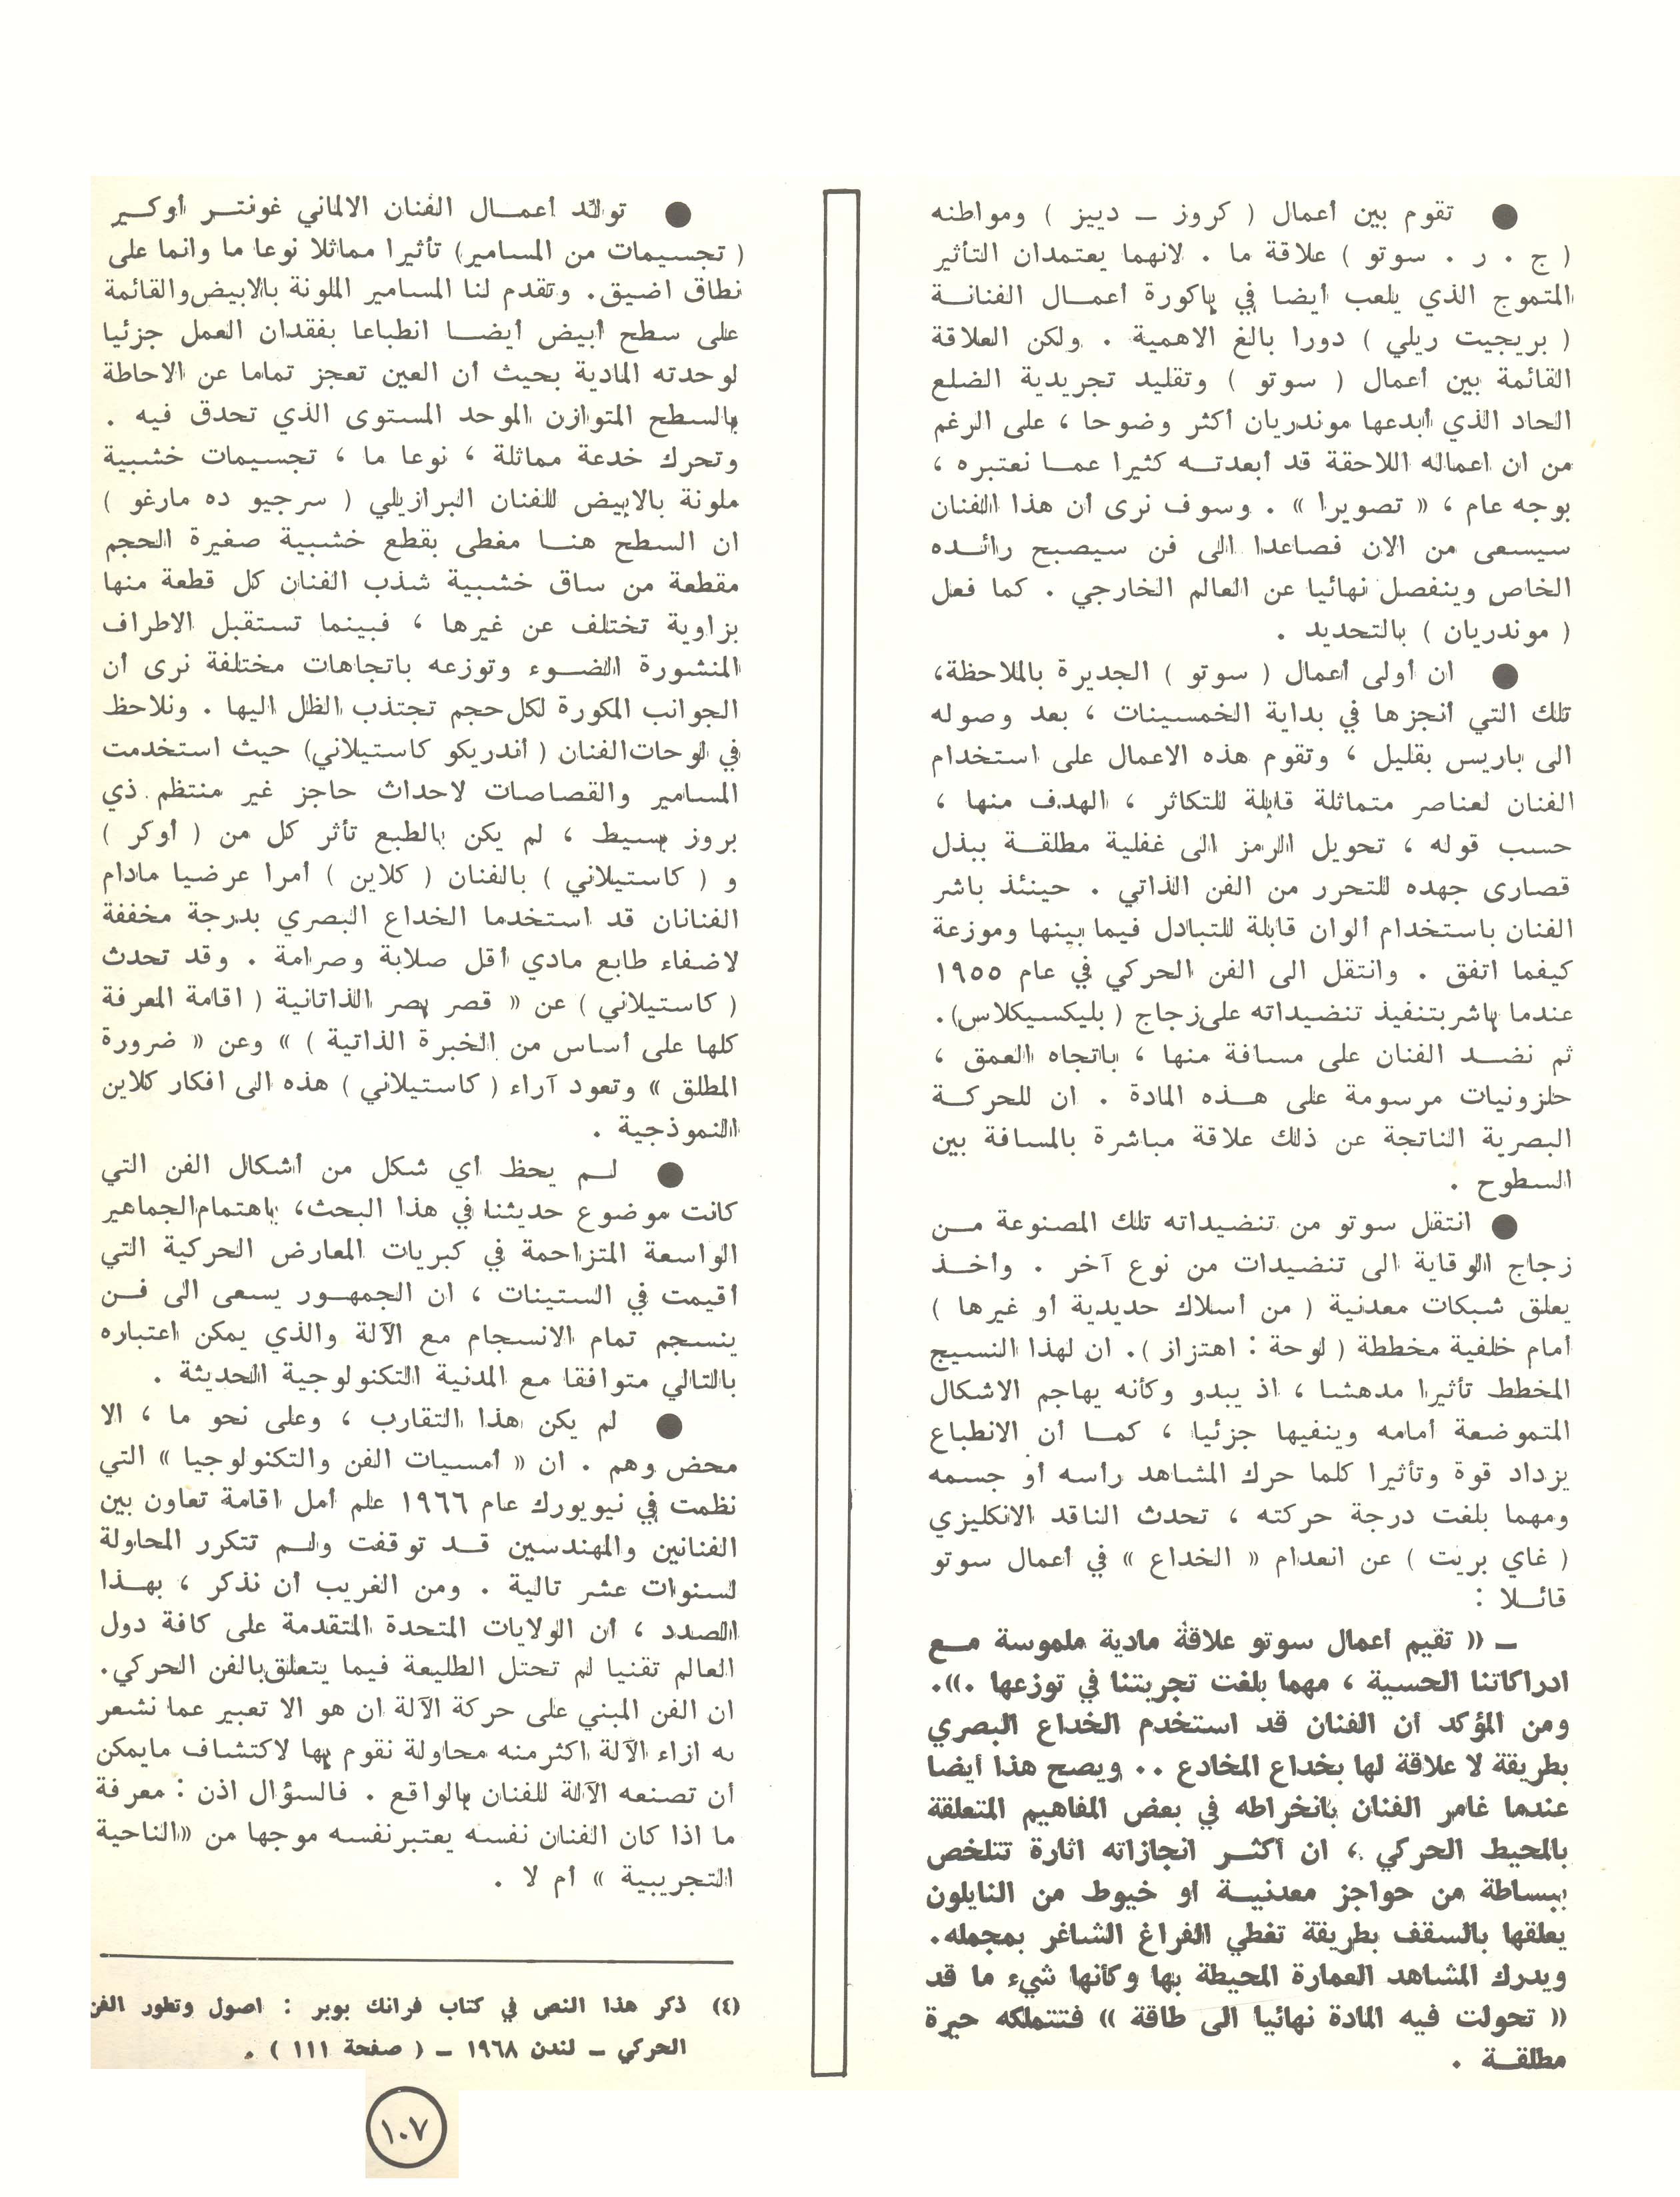 ● تقوم بين أعمال ( كروز ـ دييز ) ومواطنه
( ج ٠ ر ٠ سوتو ) علاقة ما ٠ لانهما يعتمدان التأثير
المتموج الذي يلعب أيضا في باكورة أعمـال الفنانـة
( بريجيت ريلي ) دورا بالغ الاهمية ٠ ولكن العلاقة
القائمة بين أعمال ( سوتو ) وتقليد تجريدية الضلع
الحاد الذي أبدعها موندريان أكثر وضوحا ، على الرغم
من ان اعماله اللاحقة قد أبعدتـه كثيرا عمـا نعتبره ،
بوجه عام ، « تصويرا » ٠ وسوف نرى ان هذا الفنان
سيسعى من الان فصاعدا الى فن سيصبح رائـده
الخاص وينفصل نهائيا عن العالم الخارجي ٠ كما فعل
( موندريان ) بالتحديد ٠
● ان أولى أعمال ( سوتو ) الجديرة بالملاحظة،
تلك التي أنجزها في بداية الخمسينات ، بعد وصوله
الى باريس بقليل ، وتقوم هذه الاعمال على استخدام
الفنان لعناصر متماثلة قابلة للتكاثر ، الهدف منها ،
حسب قوله ، تحويل الرمز الى غفلية مطلقـة ببذل
قصارى جهده للتحرر من الفن الذاتي ٠ حينئذ باشر
الفنان باستخدام ألوان قابلة للتبادل فيما بينها وموزعة
كيفما اتفق ٠ وانتقل الى الفن الحركي في عام ١٩٥٥
عندما باشر بتنفيذ تنضيداته على زجاج ( بليكسيكلاس)٠
ثم نضـد الفنان على مسافة منها ، باتجاه العمق ،
حلزونيات مرسومة على هـذه المادة ٠ ان للحركـة
البصرية الناتجة عن ذلك علاقة مباشرة بالمسافة بين
السطوح ٠
● انتقل سوتو من تنضيداته تلك المصنوعة مـن
زجاج الوقاية الى تنضيدات من نوع آخر ٠ وأخـذ
يعلق شبكات معدنية ( من أسلاك حديدية أو غيرها )
أمام خلفية مخططة ( لوحة : اهتزاز )٠ ان لهذا النسيج
المخطط تأثيرا مدهشا ، اذ يبدو وكأنه يهاجم الاشكال
المتموضعة أمامه وينفيها جزئيا ، كمـا أن الانطباع
يزداد قوة وتأثيرا كلما حرك المشاهد رأسه أو جسمه
ومهما بلغت درجة حركته ، تحدث الناقد الانكليزي
( غاي بريت ) عن انعدام « الخداع » في أعمال سوتو
قائـلا :
ـ « تقيم أعمال سوتو علاقة مادية ملموسة مـع
ادراكاتنا الحسية ، مهما بلغت تجربتنا في توزعها ٠»٠
ومن المؤكد أن الفنان قد استخدم الخداع البصري
بطريقة لا علاقة لها بخداع المخادع ٠٠ ويصح هذا أيضا
عندما غامر الفنان بانخراطه في بعض المفاهيم المتعلقة
بالمحيط الحركي ، ان أكثـر انجازاته اثارة تتلخص
ببساطة من حواجز معدنيـة أو خيوط من النايلون
يعلقها بالسقف بطريقة تغطي الفراغ الشاغر بمجمله٠
ويدرك المشاهد العمارة المحيطة بها وكأنها شيء ما قد
« تحولت فيه المادة نهائيا الى طاقة » فتتملكه حيرة
مطلقـة ٠
● تولّد أعمـال الفنان الالماني غونتـر أوكـير
( تجسيمات من المسامير) تأثيرا مماثلا نوعا ما وانما على
نطاق اضيق٠ وتقدم لنا المسامير الملونة بالابيض والقائمة
على سطح أبيض أيضـا انطباعا بفقدان العمل جزئيا
لوحدته المادية بحيث أن العين تعجز تماما عن الاحاطة
بالسطح المتوازن الموحد المستوى الذي تحدق فيه ٠
وتحرك خدعة مماثلة ، نوعا ما ، تجسيمات خشبية
ملونة بالابيض للفنان البرازيلي ( سرجيو ده مارغو )
ان السطح هنـا مغطى بقطع خشبية صغيرة الحجم
مقطعة من ساق خشبية شذب الفنان كل قطعة منها
بزاوية تختلف عن غيرها ، فبينما تستقبل الاطراف
المنشورة الضـوء وتوزعه باتجاهات مختلفة نرى أن
الجوانب المكورة لكل حجم تجتذب الظل اليها ٠ ونلاحظ
في لوحات الفنان ( أندريكو كاستيلاني) حيث استخدمت
المسامير والقصاصات لاحداث حاجز غير منتظم ذي
بروز بسيط ، لم يكن بالطبع تأثر كل من ( أوكر )
و ( كاستيلاني ) بالفنان ( كلاين ) أمرا عرضيا مادام
الفنانان قد استخدما الخداع البصري بدرجة مخففة
لاضفاء طابع مادي أقل صلابة وصرامة ٠ وقد تحدث
( كاستيلاني ) عن « قصر بصر الذاتانية ( اقامة المعرفة
كلها على أساس من الخبرة الذاتية ) » وعن « ضرورة
المطلق » وتعود آراء ( كاستيلاني ) هذه الى افكار كلاين
النموذجية ٠
● لـم يحظ أي شكل من أشكال الفن التي
كانت موضوع حديثنا في هذا البحث، باهتمام الجماهير
الواسعة المتزاحمة في كبريات المعارض الحركية التي
أقيمت في الستينات ، ان الجمهـور يسعى الى فـن
ينسجم تمام الانسجام مع الآلة والذي يمكن اعتباره
بالتالي متوافقا مع المدنية التكنولوجية الحديثة ٠
● لم يكن هذا التقارب ، وعلى نحو ما ، الا
محض وهم ٠ ان « أمسيات الفن والتكنولوجيا » التي
نظمت في نيويورك عام ١٩٦٦ علم أمل اقامة تعاون بين
الفنانين والمهندسين قـد توقفت ولـم تتكرر المحاولة
لسنوات عشر تالية ٠ ومن الغريب أن نذكر ، بهـذا
الصدد ، أن الولايات المتحدة المتقدمة على كافة دول
العالم تقنيا لم تحتل الطليعة فيما يتعلق بالفن الحركي٠
ان الفن المبني على حركة الآلة ان هو الا تعبير عما نشعر
به ازاء الآلة اكثر منه محاولة نقوم بها لاكتشاف مايمكن
أن تصنعه الآلة للفنان بالواقع ٠ فالسؤال اذن : معرفة
ما اذا كان الفنان نفسه يعتبر نفسه موجها من «الناحية
التجريبية » أم لا ٠
(٤) ذكر هذا النص في كتاب فرانك بوبر : اصول وتطور الفن
الحركي ـ لندن ١٩٦٨ ـ ( صفحة ١١١ ) ٠
١٠٧